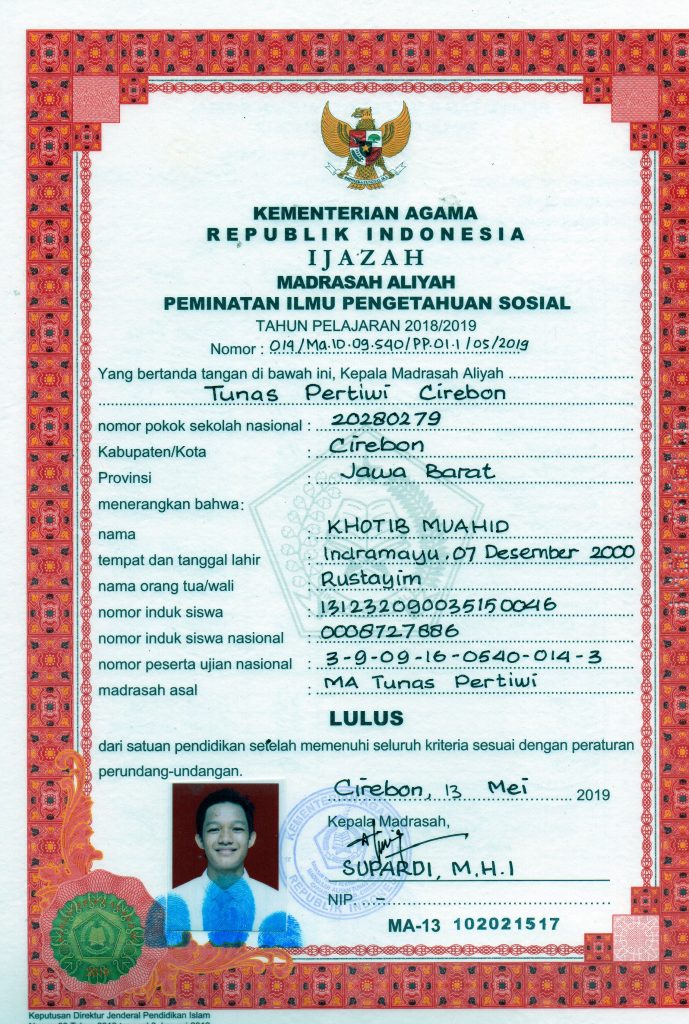 KEMENTERIAN AGAMA
REPUBLIK INDONESIA
IJAZAH
MADRASAH ALIYAH
PEMINATAN ILMU PENGETAHUAN SOSIAL
TAHUN PELAJARAN 2018/2019
Nomor : 019/Ma.10.09.540/PP.01.1/05/2019
Yang bertanda tangan di bawah ini, Kepala Madrasah Aliyah
Tunas Pertiwi Cirebon
nomor pokok sekolah nasional : 20280279
Kabupaten/Kota : Cirebon
Provinsi : Jawa Barat
menerangkan bahwa:
nama : KHOTIB MUAHID
tempat dan tanggal lahir : Indramayu, 07 Desember 2000
nama orang tua/wali : Rustayim
nomor induk siswa : 131232090035150046
nomor induk siswa nasional : 0008727886
nomor peserta ujian nasional : 3-9-09-16-0540-014-3
madrasah asal : MA Tunas Pertiwi
LULUS
dari satuan pendidikan setelah memenuhi seluruh kriteria sesuai dengan peraturan
perundang-undangan.
Cirebon, 13 Mei 2019
Kepala Madrasah,
SUPARDI, M.H.I
NIP. -
MA-13 102021517
KEMENTERIAN AGAMA
REPUBLIK INDONESIA
Keputusan Direktur Jenderal Pendidikan Islam